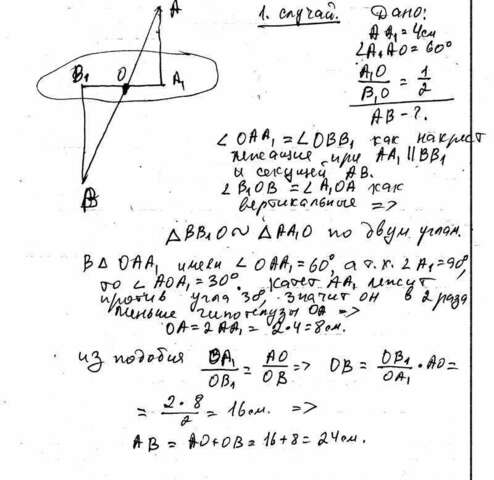 A
1. случай.
Дано:
AA₁ = 4см
∠A₁AO = 60°
A₁O / B₁O = 1 / 2
AB - ?.
B₁ O A₁
B
∠OAA₁ = ∠OBB₁ как накрест
лежащие при AA₁ || BB₁
и секущей AB.
∠B₁OB = ∠A₁OA как
вертикальные =>
△BB₁O ~ △AA₁O по двум углам.
В △ OAA₁ имеем ∠OAA₁ = 60°, а т.к. ∠A₁ = 90°,
то ∠AOA₁ = 30°. Катет AA₁ лежит
против угла 30°, значит он в 2 раза
меньше гипотенузы OA =>
OA = 2AA₁ = 2·4 = 8см.
из подобия OA₁ / OB₁ = AO / OB => OB = OB₁ / OA₁ · AO =
= 2·8 / 2 = 16см. =>
AB = AO + OB = 16 + 8 = 24см.